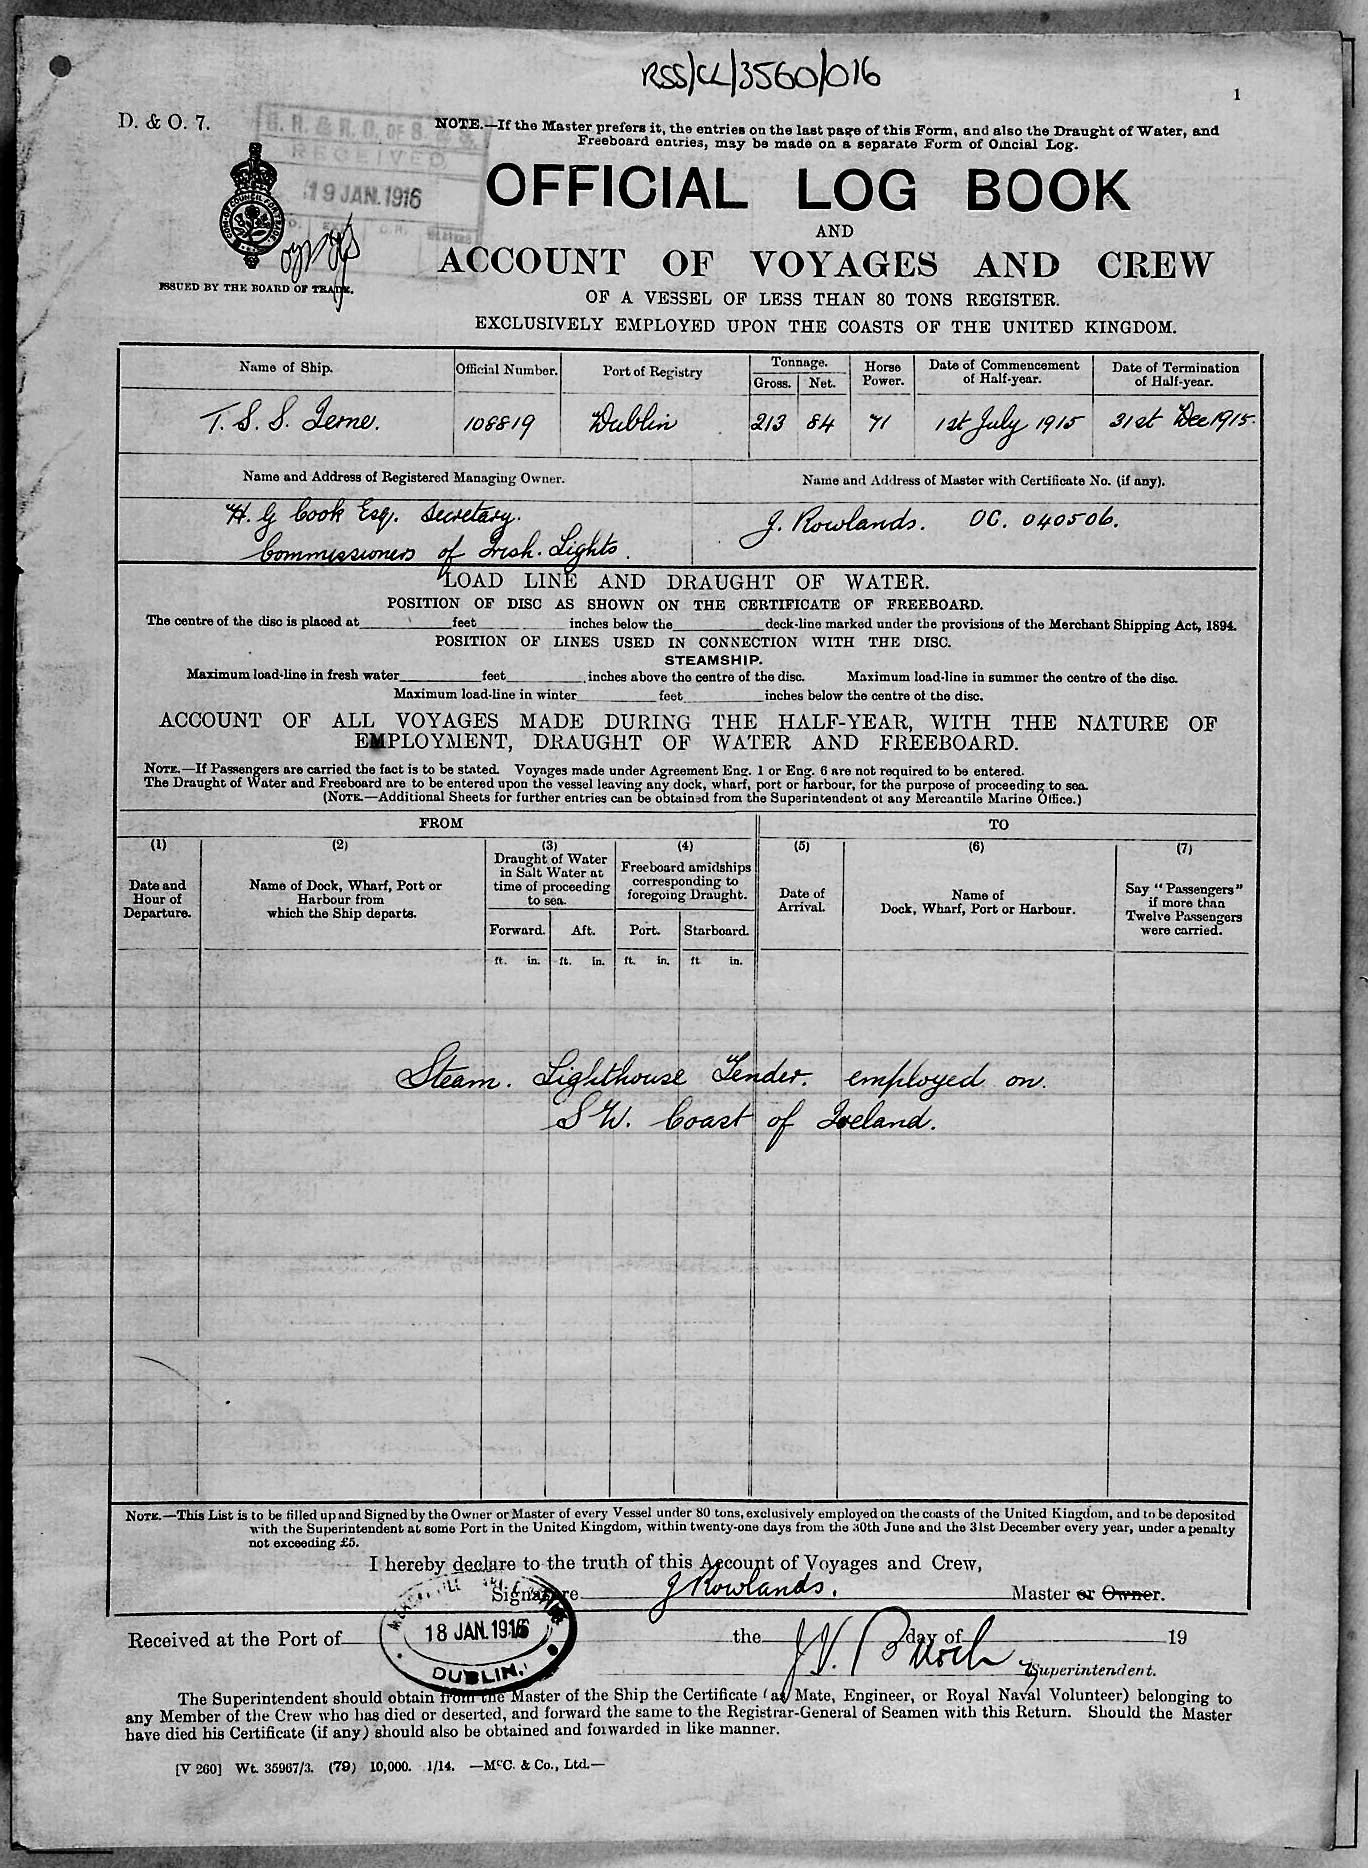 RSS/CL/3560/016
1
D. & O. 7.
NOTE.—If the Master prefers it, the entries on the last page of this Form, and also the Draught of Water, and
Freeboard entries, may be made on a separate Form of Official Log.
RECEIVED
19 JAN. 1916
ISSUED BY THE BOARD OF TRADE.
OFFICIAL LOG BOOK
AND
ACCOUNT OF VOYAGES AND CREW
OF A VESSEL OF LESS THAN 80 TONS REGISTER.
EXCLUSIVELY EMPLOYED UPON THE COASTS OF THE UNITED KINGDOM.
Name of Ship. Official Number. Port of Registry Tonnage. Gross. Net. Horse Power. Date of Commencement of Half-year. Date of Termination of Half-year.
T. S. S. Ierne. 108819 Dublin 213 84 71 1st July 1915 31st Dec 1915.
Name and Address of Registered Managing Owner. Name and Address of Master with Certificate No. (if any).
H. G Cook Esq. Secretary. J. Rowlands. OC. 040506.
Commissioners of Irish. Lights.
LOAD LINE AND DRAUGHT OF WATER.
POSITION OF DISC AS SHOWN ON THE CERTIFICATE OF FREEBOARD.
The centre of the disc is placed at feet inches below the deck-line marked under the provisions of the Merchant Shipping Act, 1894.
POSITION OF LINES USED IN CONNECTION WITH THE DISC.
STEAMSHIP.
Maximum load-line in fresh water feet inches above the centre of the disc. Maximum load-line in summer the centre of the disc.
Maximum load-line in winter feet inches below the centre of the disc.
ACCOUNT OF ALL VOYAGES MADE DURING THE HALF-YEAR, WITH THE NATURE OF
EMPLOYMENT, DRAUGHT OF WATER AND FREEBOARD.
NOTE.—If Passengers are carried the fact is to be stated. Voyages made under Agreement Eng. 1 or Eng. 6 are not required to be entered.
The Draught of Water and Freeboard are to be entered upon the vessel leaving any dock, wharf, port or harbour, for the purpose of proceeding to sea.
(NOTE.—Additional Sheets for further entries can be obtained from the Superintendent of any Mercantile Marine Office.)
FROM TO
(1) (2) (3) (4) (5) (6) (7)
Date and Hour of Departure.
Name of Dock, Wharf, Port or Harbour from which the Ship departs.
Draught of Water in Salt Water at time of proceeding to sea.
Freeboard amidships corresponding to foregoing Draught.
Date of Arrival.
Name of Dock, Wharf, Port or Harbour.
Say "Passengers" if more than Twelve Passengers were carried.
Forward. Aft. Port. Starboard.
ft. in. ft. in. ft. in. ft in.
Steam. Lighthouse Tender. employed on.
S W. Coast of Ireland.
NOTE.—This List is to be filled up and Signed by the Owner or Master of every Vessel under 80 tons, exclusively employed on the coasts of the United Kingdom, and to be deposited
with the Superintendent at some Port in the United Kingdom, within twenty-one days from the 30th June and the 31st December every year, under a penalty
not exceeding £5.
I hereby declare to the truth of this Account of Voyages and Crew,
Signature J Rowlands. Master or Owner.
18 JAN. 1916
DUBLIN.
Received at the Port of the day of 19
Superintendent.
The Superintendent should obtain from the Master of the Ship the Certificate (as Mate, Engineer, or Royal Naval Volunteer) belonging to
any Member of the Crew who has died or deserted, and forward the same to the Registrar-General of Seamen with this Return. Should the Master
have died his Certificate (if any) should also be obtained and forwarded in like manner.
[V 260] Wt. 35967/3. (79) 10,000. 1/14. —McC. & Co., Ltd.—